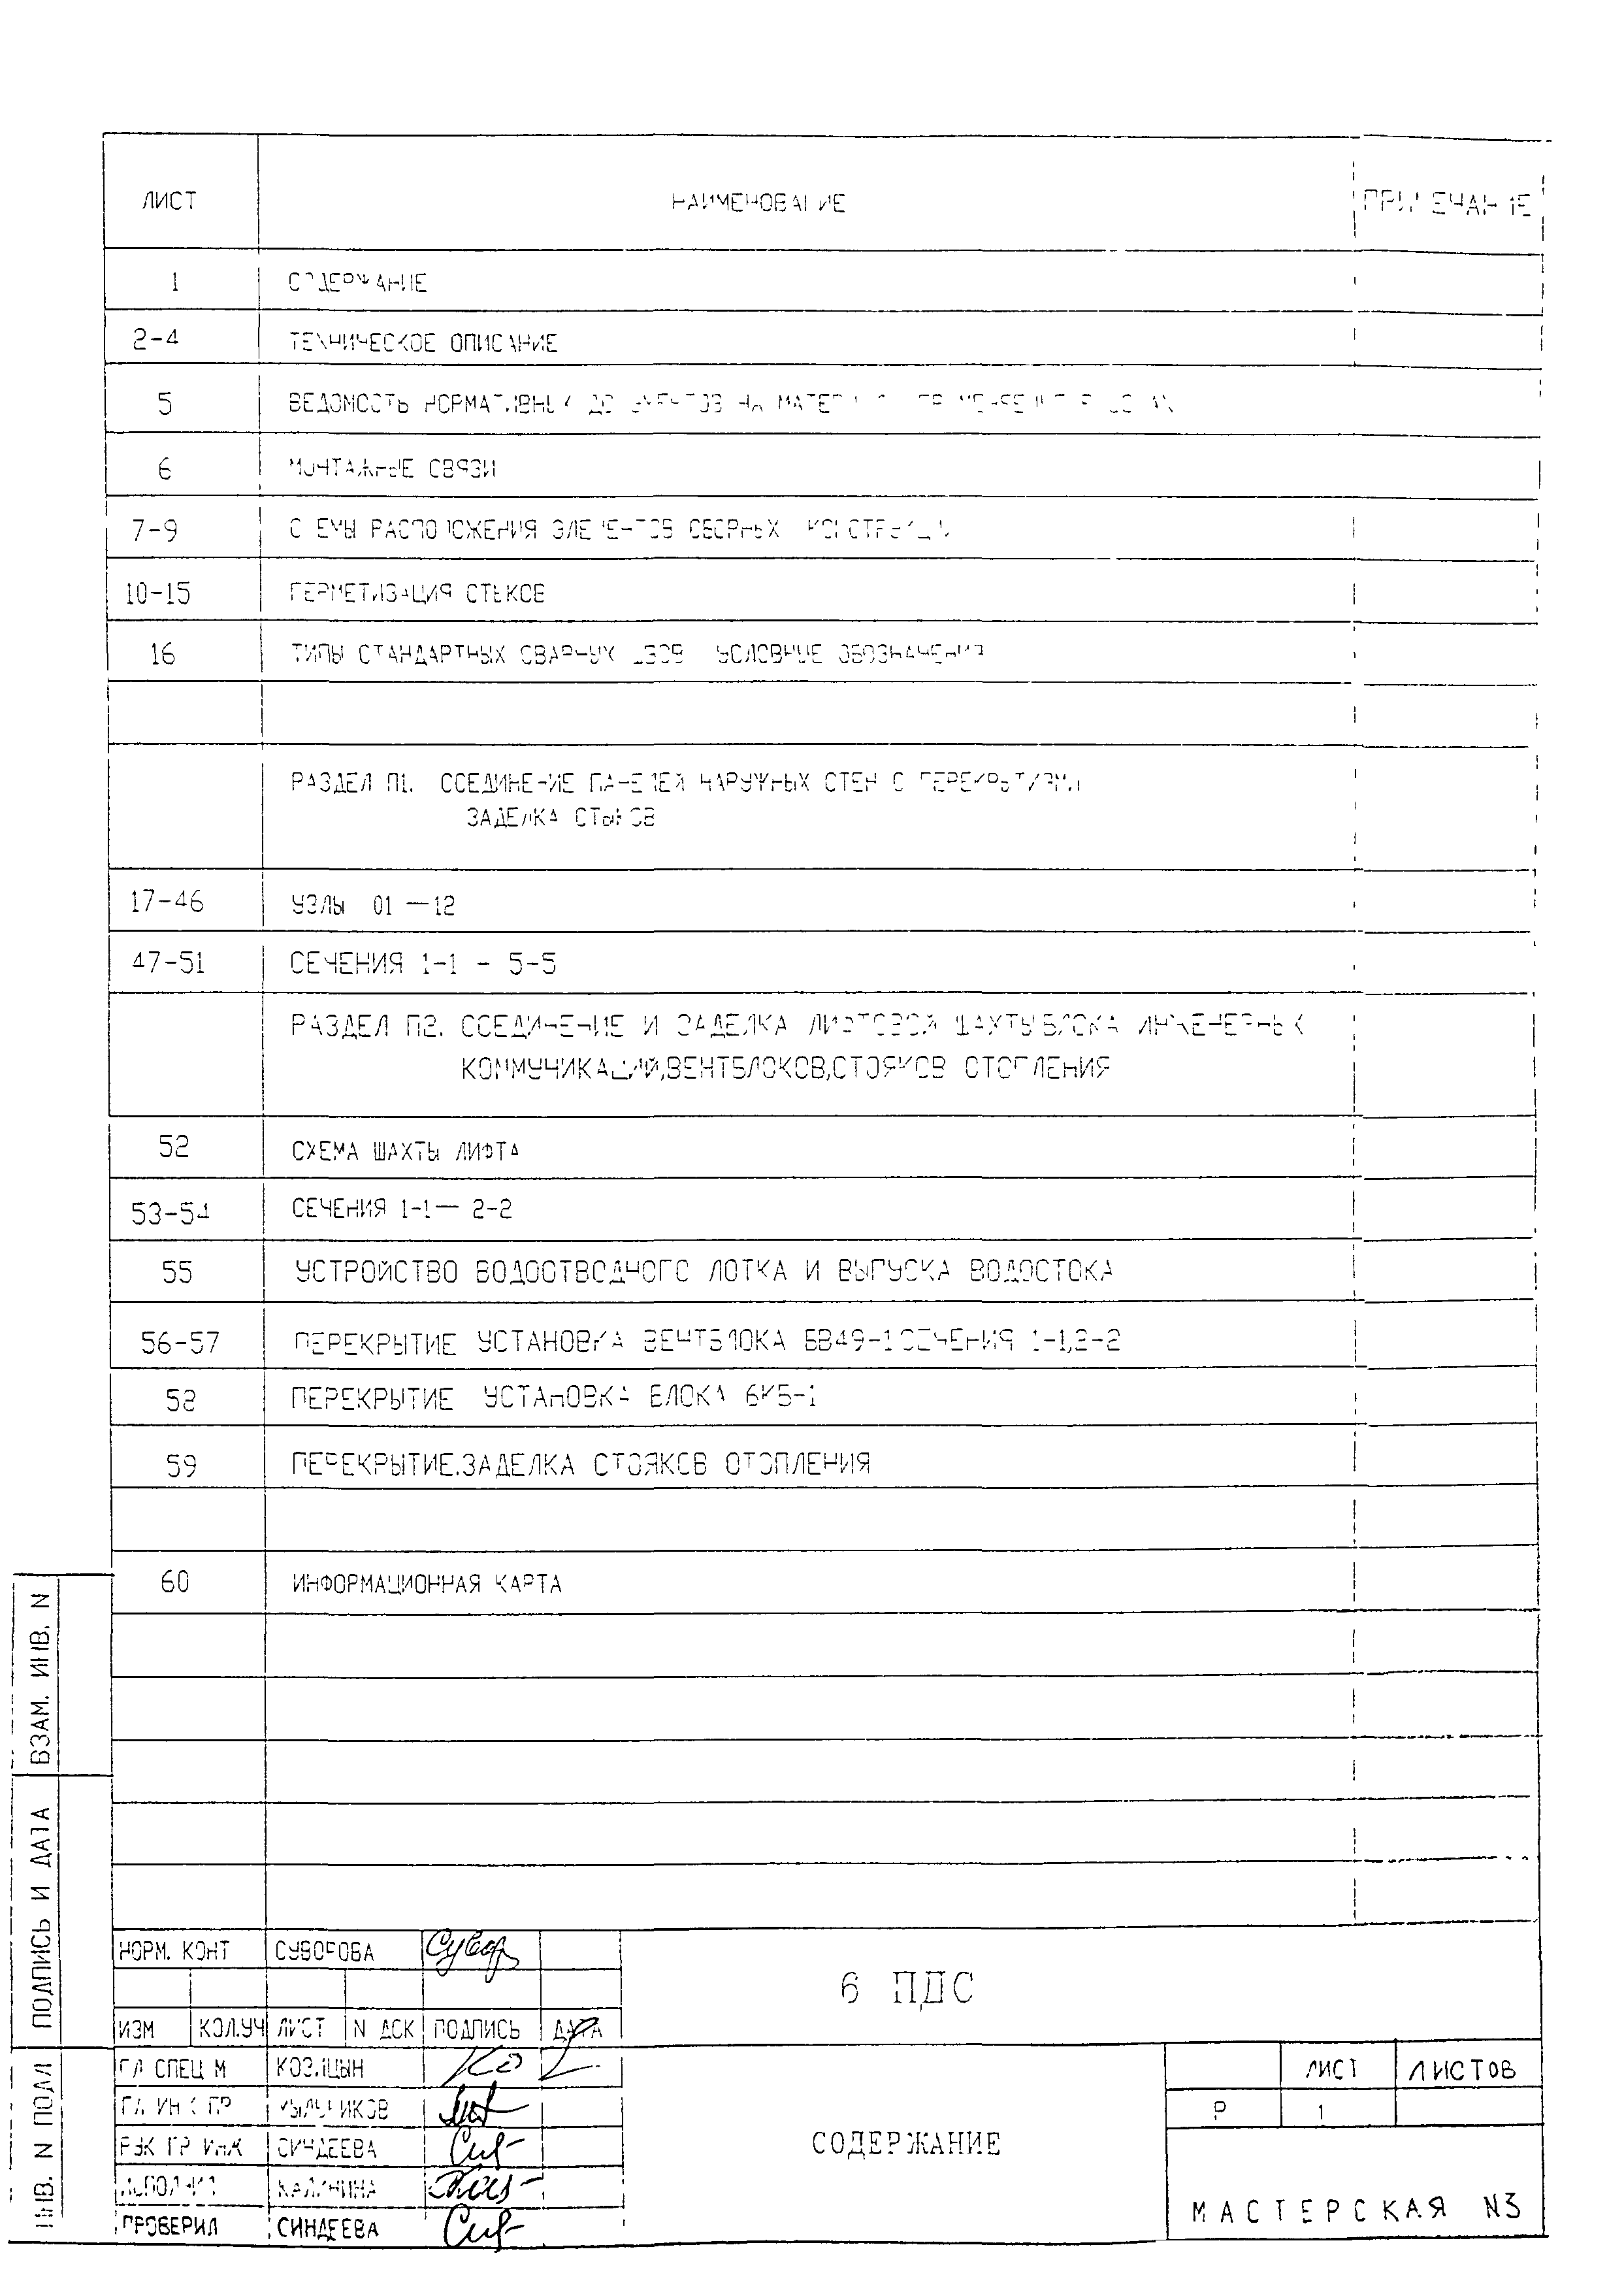 ЛИСТ НАИМЕНОВАНИЕ ПРИМЕЧАНИЕ
1 СОДЕРЖАНИЕ
2-4 ТЕХНИЧЕСКОЕ ОПИСАНИЕ
5 ВЕДОМОСТЬ НОРМАТИВНЫХ ДОКУМЕНТОВ НА
6 МОНТАЖНЫЕ СВЯЗИ
7-9 СХЕМЫ РАСПОЛОЖЕНИЯ ЭЛЕМЕНТОВ СБОРНЫХ КОНСТРУКЦИЙ
10-15 ГЕРМЕТИЗАЦИЯ СТЫКОВ
16 ТИПЫ СТАНДАРТНЫХ СВАРНЫХ ШВОВ УСЛОВНЫЕ ОБОЗНАЧЕНИЯ
РАЗДЕЛ П1. СОЕДИНЕНИЕ ПАНЕЛЕЙ НАРУЖНЫХ СТЕН С ПЕРЕКРЫТИЯМИ
ЗАДЕЛКА СТЫКОВ
17-46 УЗЛЫ 01 — 12
47-51 СЕЧЕНИЯ 1-1 - 5-5
РАЗДЕЛ П2. СОЕДИНЕНИЕ И ЗАДЕЛКА ЛИФТОВОЙ ШАХТЫ БЛОКА ИНЖЕНЕРНЫХ
КОММУНИКАЦИЙ,ВЕНТБЛОКОВ,СТОЯКОВ ОТОПЛЕНИЯ
52 СХЕМА ШАХТЫ ЛИФТА
53-54 СЕЧЕНИЯ 1-1— 2-2
55 УСТРОЙСТВО ВОДООТВОДНОГО ЛОТКА И ВЫПУСКА ВОДОСТОКА
56-57 ПЕРЕКРЫТИЕ УСТАНОВКА ВЕНТБЛОКА БВ49-1 СЕЧЕНИЯ 1-1,2-2
58 ПЕРЕКРЫТИЕ УСТАНОВКА БЛОКА 6КБ-1
59 ПЕРЕКРЫТИЕ.ЗАДЕЛКА СТОЯКОВ ОТОПЛЕНИЯ
60 ИНФОРМАЦИОННАЯ КАРТА
ВЗАМ. ИНВ. N
ПОДПИСЬ И ДАТА
ИНВ. N ПОДЛ
НОРМ. КОНТ СУВОРОВА
ИЗМ КОЛ.УЧ ЛИСТ N ДОК ПОДПИСЬ ДАТА
6 ПДС
ГЛ СПЕЦ М
ГЛ ИНЖ ПР
РУК ГР ИНЖ СИНДЕЕВА
ИСПОЛНИЛ КАЛИНИНА
ПРОВЕРИЛ СИНДЕЕВА
СОДЕРЖАНИЕ
ЛИСТ ЛИСТОВ
Р 1
МАСТЕРСКАЯ N3